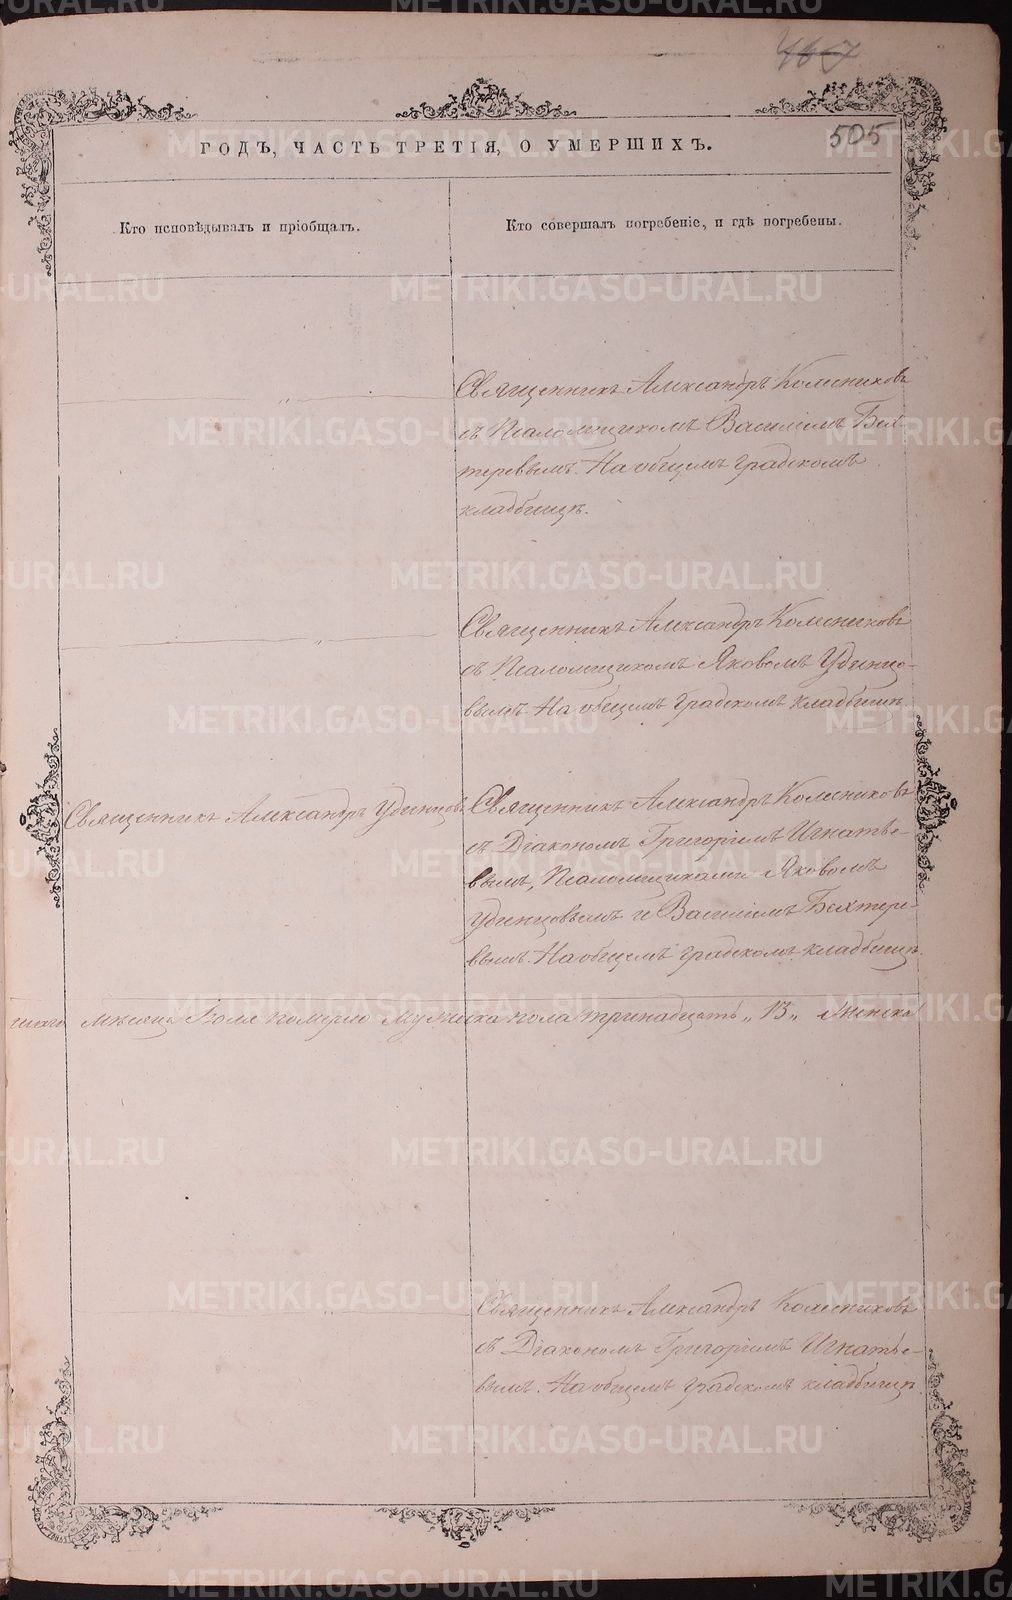 467
505
ГОДЪ, ЧАСТЬ ТРЕТІЯ, О УМЕРШИХЪ.
Кто исповѣдывалъ и пріобщалъ.
Кто совершалъ погребеніе, и гдѣ погребены.
Священникъ Александръ Колесниковъ
съ Псаломщикомъ Василіемъ Бех-
теревымъ. На общемъ градскомъ
кладбищѣ.
Священникъ Александръ Колесниковъ
съ Псаломщикомъ Яковомъ Удинцо-
вымъ На общемъ градскомъ кладбищѣ.
Священникъ Александръ Удинцовъ
Священникъ Александръ Колесниковъ
съ Діакономъ Григоріемъ Игнатье-
вымъ, Псаломщиками Яковомъ
Удинцовымъ и Василіемъ Бехтере-
вымъ. На общемъ градскомъ кладбищѣ.
мѣсяца Іюля померло мужеска пола тринадцать „13„ Женска
Священникъ Александръ Колесниковъ
съ Діакономъ Григоріемъ Игнатье-
вымъ. На общемъ градскомъ кладбищѣ.
METRIKI.GASO-URAL.RU